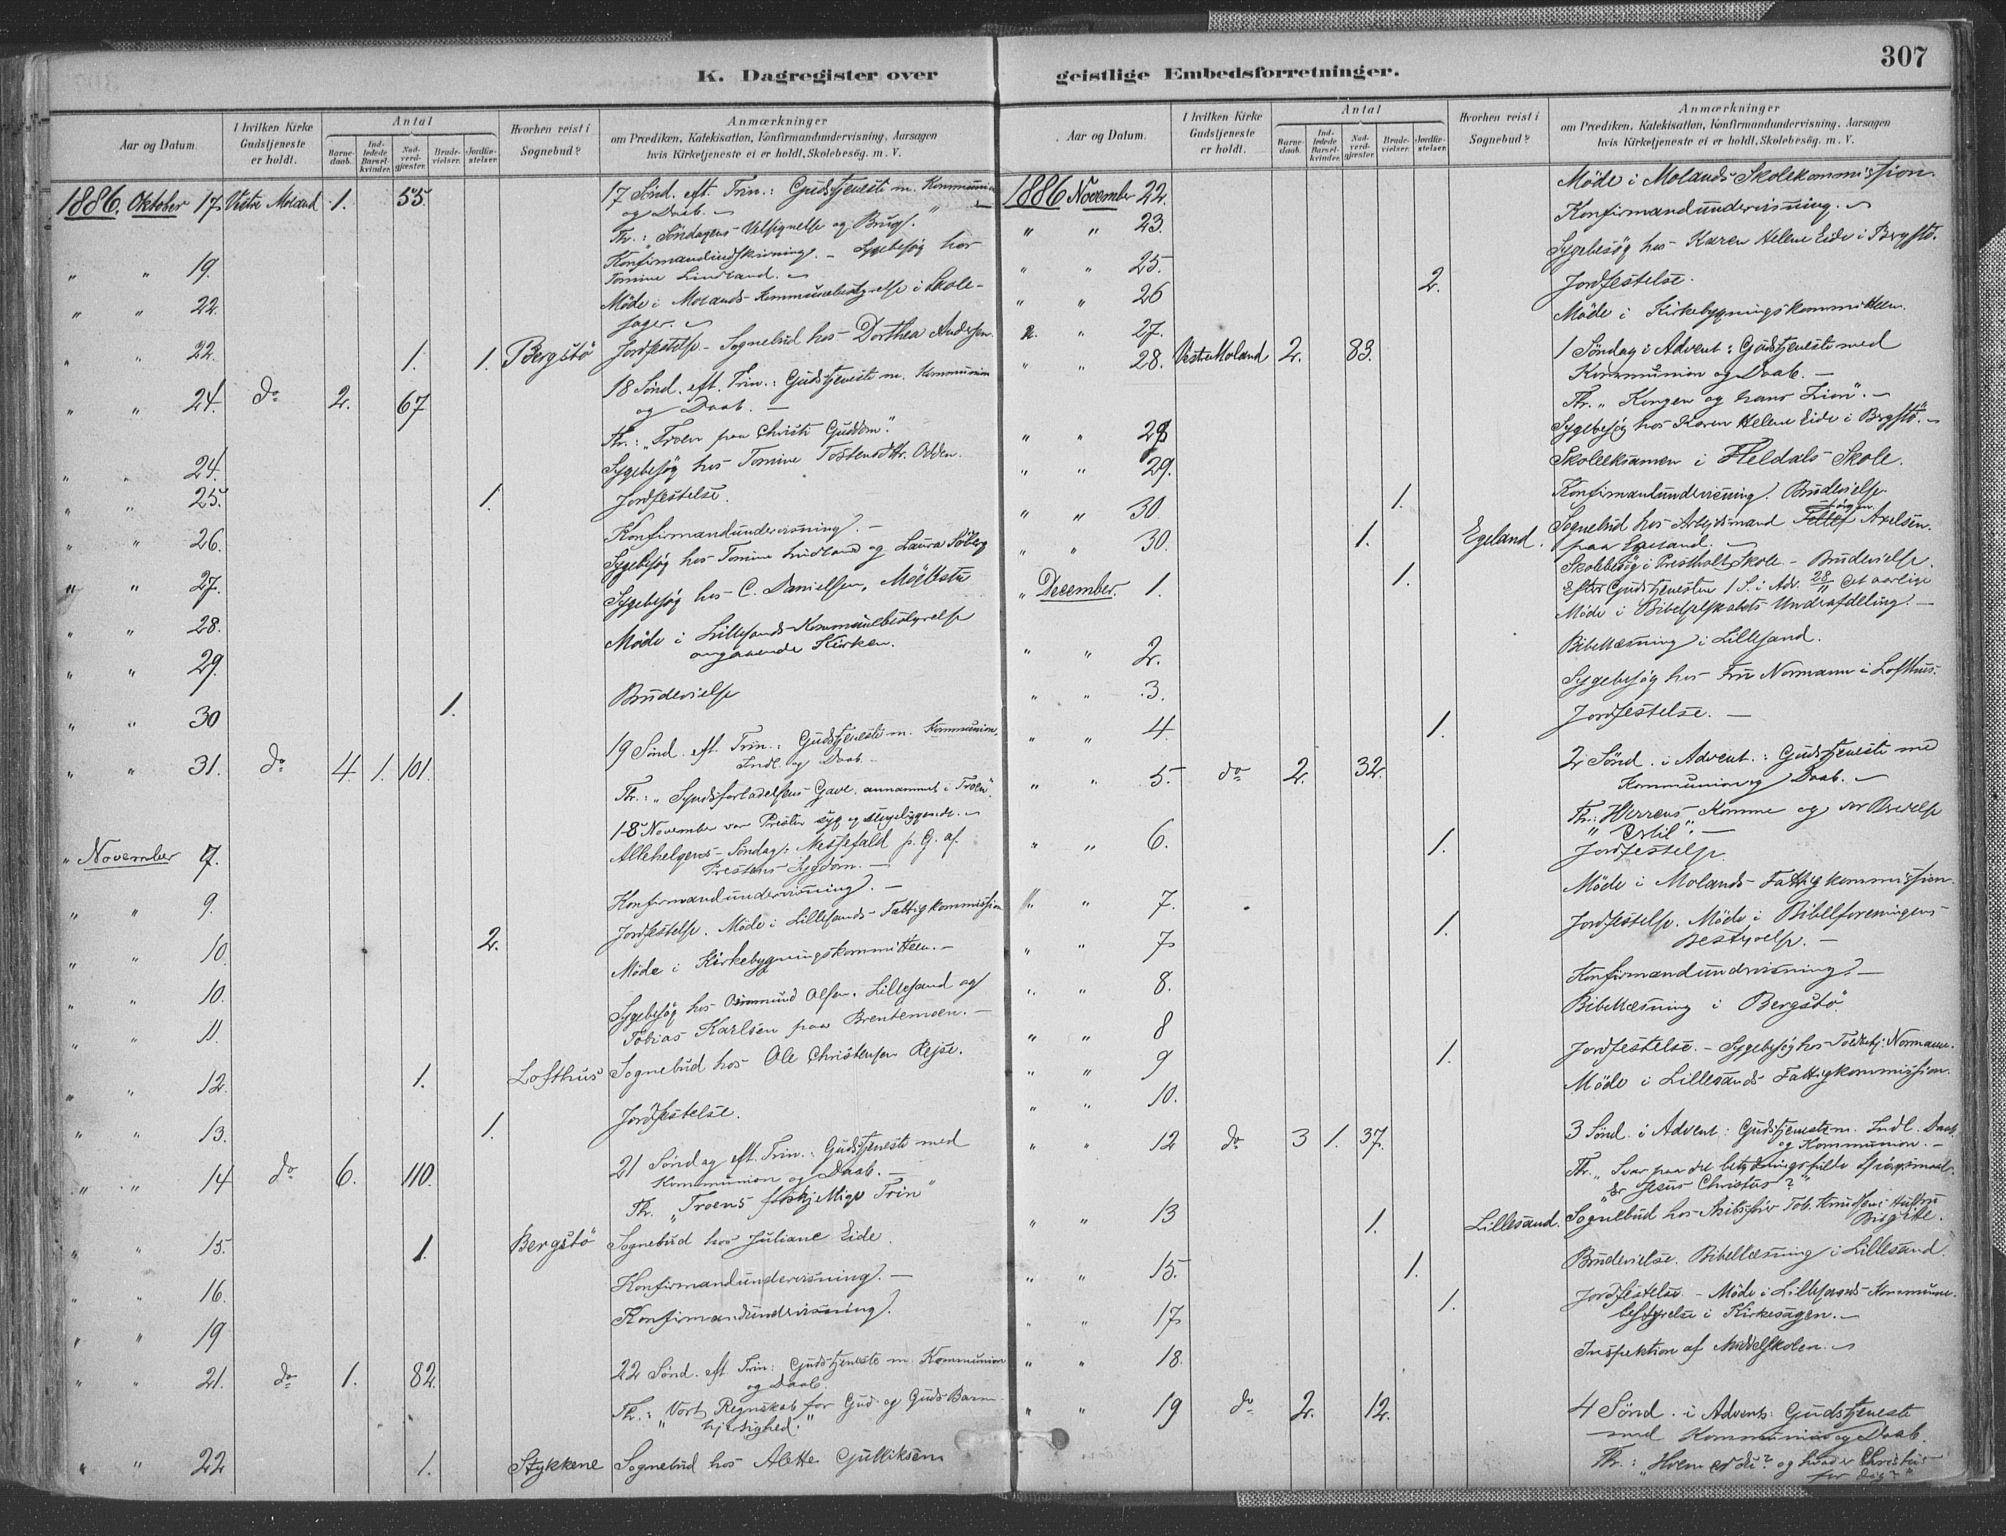 307
K. Dagregister over geistlige Embedsforretninger.
Aar og Datum.
I hvilken Kirke Gudstjeneste er holdt.
Antal
Barnedaab.
Indledede Barselkvinder.
Nadverdgjæster.
Brudevielser.
Jordfæstelser
Hvorhen reist i Sognebud?
Anmærkninger
om Prædiken, Katekisation, Konfirmandundervisning, Aarsagen
hvis Kirketjeneste ei er holdt, Skolebesög. m. V.
1886. Oktober 17. Vestre Moland 1. 55. 17 Sönd. eft. Trin.: Gudstjeneste m. Kommunion
og Daab.
Th.: Söndagens Velsignelse og Brug.
" " 19. Konfirmandindskrivning. – Sygebesög hos
Tomine Lindland.
" " 22. Möde i Molands Kommunebestyrelse i Skole-
sager.
" " 22. 1. 1. Bergstö Jordfestelse – Sognebud hos Dorthea Andersen
" " 24. do 2. 67 18 Sönd. eft. Trin.: Gudstjeneste m. Kommunion
og Daab. –
Th.: "Troen paa Christi Guddom".
" " 24. Sygebesög hos Tomine Tostensdtr. Odden.
" " 25. 1. Jordfestelse.
" " 26. Konfirmandundervisning. –
Sygebesög hos Tomine Lindland og Laura Söberg
" " 27. Sygebesög hos C. Danielsen, Möllestu
" " 28. Möde i Lillesands Kommunebestyrelse
angaaende Kirken.
" " 29.
" " 30 1. Brudevielse
" " 31. do 4. 1. 101. 19 Sönd. eft. Trin.: Gudstjeneste m. Kommunion,
Indl. og Daab –
Th.: "Syndsforladelsens Gave annammet i Troen".
1-8 November var Presten syg og sengeliggende.
" November 7. Allehelgens-Söndag: Messefald p. G. af
Prestens Sygdom. –
" " 9. Konfirmandundervisning. –
" " 10. 2. Jordfestelse. Möde i Lillesands Fattigkommission
" " 10. Möde i Kirkebygningskommitteen. –
" " 11. Sygebesög hos Osmund Olsen, Lillesand og
Tobias Karlsen paa Brentemoen. –
" " 12. 1. Lofthus Sognebud hos Ole Christensen Rejse.
" " 13. 1. Jordfestelse.
" " 14 do 6. 110. 21 Söndag eft. Trin.: Gudstjeneste med
Kommunion og Daab. –
Th. "Troens forskjellige Trin"
" " 15. 1. Bergstö Sognebud hos Juliane Eide.
" " 16. Konfirmandundervisning. –
" " 19 Konfirmandundervisning.
" " 21. do 1. 82. 22 Sönd. eft. Trin: Gudstjeneste m. Kommunion
og Daab.
Th.: "Vort Regnskab for Gud og Guds Barm-
hjertighed."
" " 22 1. Stykkene Sognebud hos Alette Gulliksen
Aar og Datum.
I hvilken Kirke Gudstjeneste er holdt.
Antal
Barnedaab.
Indledede Barselkvinder.
Nadverdgjæster.
Brudevielser.
Jordfæstelser.
Hvorhen reist i Sognebud?
Anmærkninger
om Prædiken, Katekisation, Konfirmandundervisning, Aarsagen
hvis Kirketjeneste ei er holdt, Skolebesög. m. V.
1886 November 22. Möde i Molands Skolekommission.
" " 23. Konfirmandundervisning.
" " 25. Sygebesög hos Karen Helene Eide i Bergstö.
" " 26 2. Jordfestelse.
" " 27. Möde i Kirkebygningskommitteen.
" " 28. Vestre Moland 2. 83. 1 Söndag i Advent: Gudstjeneste med
Kommunion og Daab. –
Th. "Kongen og hans Zion".
" " 28 Sygebesög hos Karen Helene Eide i Bergstö. –
" " 29. Skoleeksamen i Heldals Skole.
" " 30 1. Konfirmandundervisning. Brudevielse
" " 30. 1. Egeland. Sognebud hos Arbejdsmand Axelsen
paa Egeland.
" December. 1. 1. Skolebesög i Prestholt Skole – Brudevielse.
Efter Gudstjenesten 1 S. i Adv. 28/11 det aarlige
Möde i Bibelselskabets Underafdeling. –
" " 2. Bibellæsning i Lillesand.
" " 3. Sygebesög hos Fru Normann i Lofthus.
" " 4 1. Jordfestelse. –
" " 5. do 2. 32. 2 Sönd. i Advent.: Gudstjeneste med
Kommunion og Daab.
Th: "Herrens Komme og vor Beredelse
dertil". –
" " 6. 1. Jordfestelse
" " 7. Möde i Molands Fattigkommission.
" " 7 1. Jordfestelse. Möde i Bibelforeningens
Bestyrelse. –
" " 8. Konfirmandundervisning. –
" " 8 Bibellæsning i Bergstö.
" " 9 1. Jordfestelse. – Sygebesög hos Toldbetj. Normann.
" " 10. Möde i Lillesands Fattigkommission.
" " 12 do 3 1. 37. 3 Sönd. i Advent: Gudstjeneste m. Indl. Daab
og Kommunion. –
Th. "Svar paa det betydningsfulde Spörgsmaal:
"Er Jesus Christus?"
" " 13 1. Lillesand. Sognebud hos Tob. Knudsens Hustru
Birgitte.
" " 15. 1. Brudevielse. Bibellæsning i Lillesand.
" " 17 1. Jordfestelse – Möde i Lillesands Kommune-
bestyrelse i Kirkesagen. –
" " 18. Inspektion af Middelskolen.
" " 19 do 2. 12. 4 Sönd. i Advent: Gudstjeneste
med Kommunion og Daab.
Th.: "Hvem er du? og hvad er Christus
for dig?"